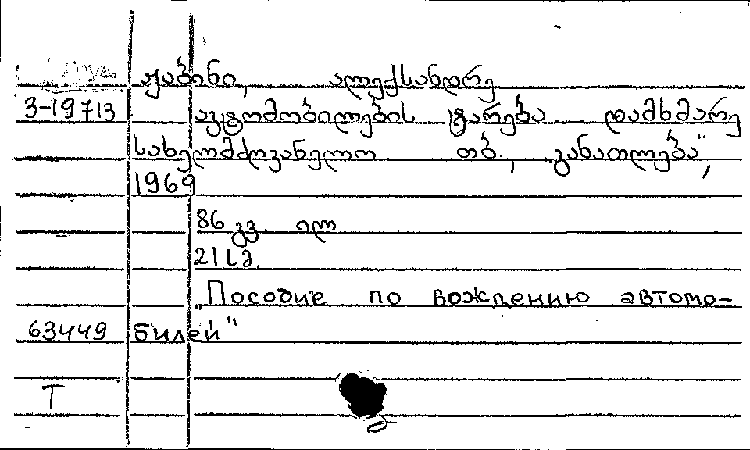 ჟაბინი, ალექსანდრე
3-19713 ავტომობილების ტარება დამხმარე
სახელმძღვანელო თბ., „განათლება“,
1969
86 გვ ილ
21 სმ.
„Пособие по вождению автомо-
63449 билей“
Т